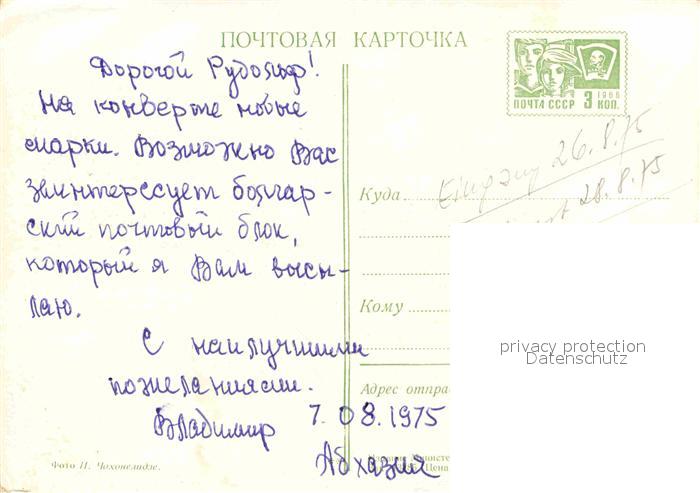 ПОЧТОВАЯ КАРТОЧКА
Дорогой Рудольф!
На конверте новые
марки. Возможно Вас
заинтересует болгар-
ский почтовый блок,
который я Вам высы-
лаю.
С наилучшими
пожеланиями.
Владимир 7.08.1975
Абхазия
ПОЧТА СССР 3 1966 КОП.
Eingang 26.8.75
28.8.75
Куда
Кому
Адрес отправ
privacy protection
Datenschutz
Фото П. Чохонелидзе.
Цена